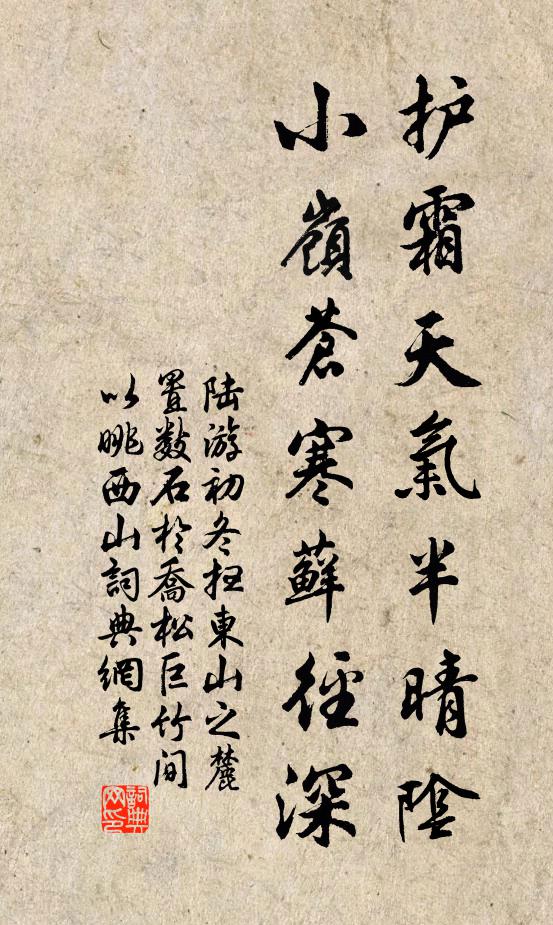 护霜天氣半晴陰
小嶺蒼寒蘚徑深
陆游初冬扫東山之麓
置数石於喬松巨竹间
以眺西山詞典網集
詞典网印